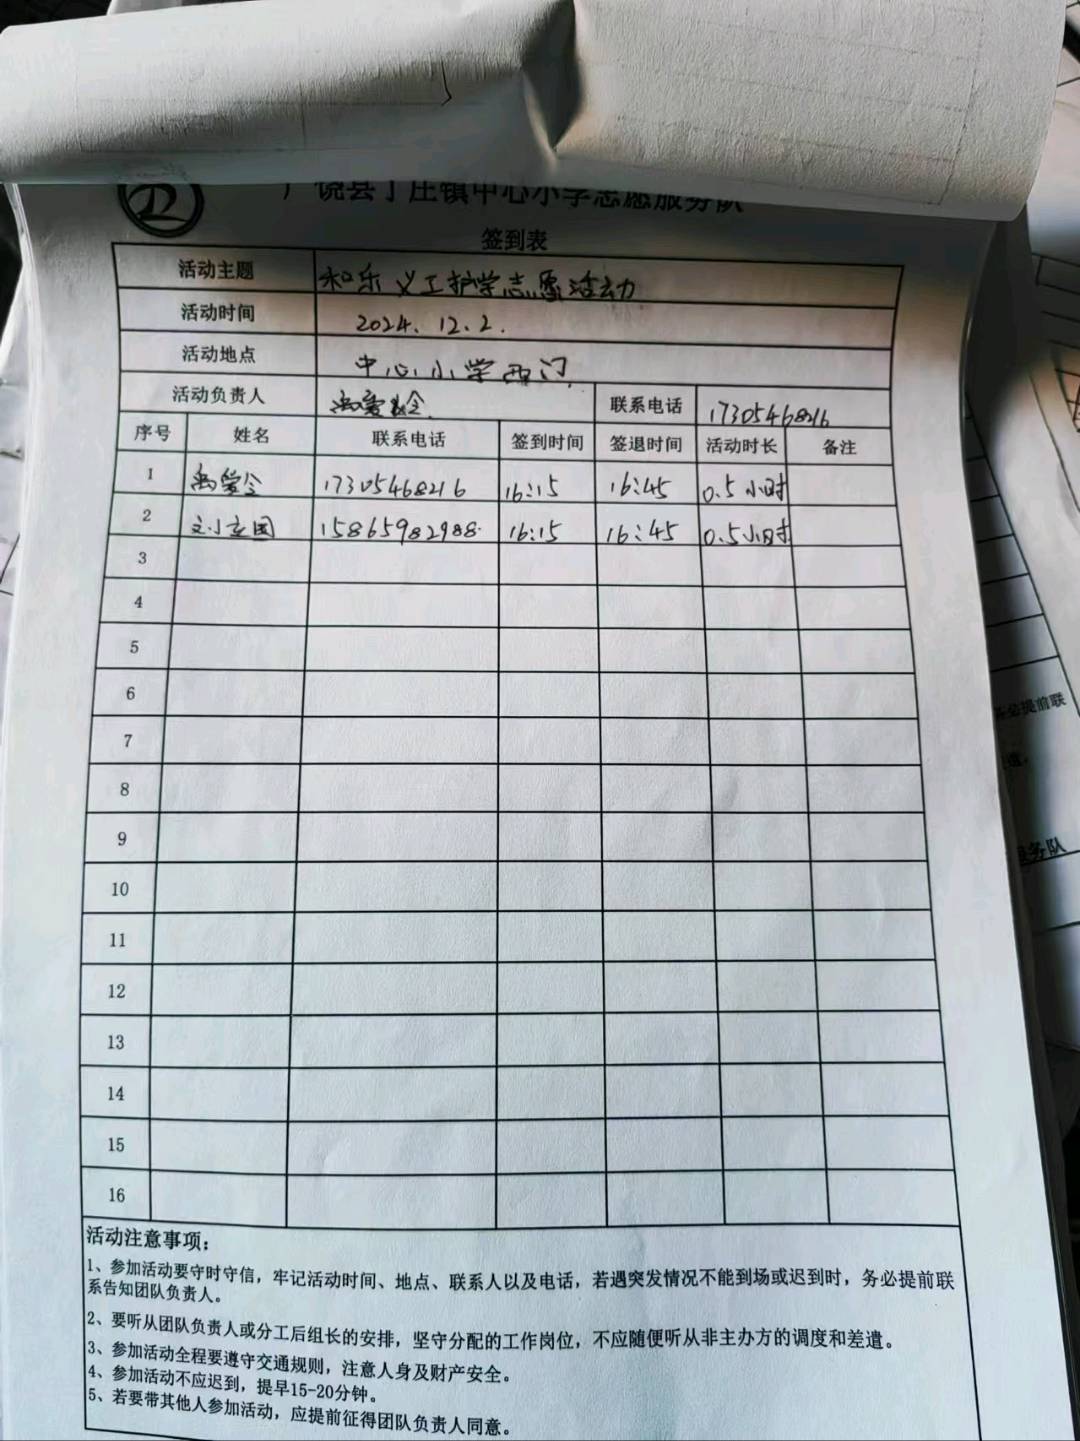 广饶县丁庄镇中心小学志愿服务队
签到表
活动主题 和乐义工护学志愿活动
活动时间 2024.12.2.
活动地点 中心小学西门
活动负责人 联系电话 17305468216
序号 姓名 联系电话 签到时间 签退时间 活动时长 备注
1 17305468216 16:15 16:45 0.5小时
2 刘立国 15865982988 16:15 16:45 0.5小时
3
4
5
6
7
8
9
10
11
12
13
14
15
16
活动注意事项：
1、参加活动要守时守信，牢记活动时间、地点、联系人以及电话，若遇突发情况不能到场或迟到时，务必提前联
系告知团队负责人。
2、要听从团队负责人或分工后组长的安排，坚守分配的工作岗位，不应随便听从非主办方的调度和差遣。
3、参加活动全程要遵守交通规则，注意人身及财产安全。
4、参加活动不应迟到，提早15-20分钟。
5、若要带其他人参加活动，应提前征得团队负责人同意。
务必提前联
遣。
服务队